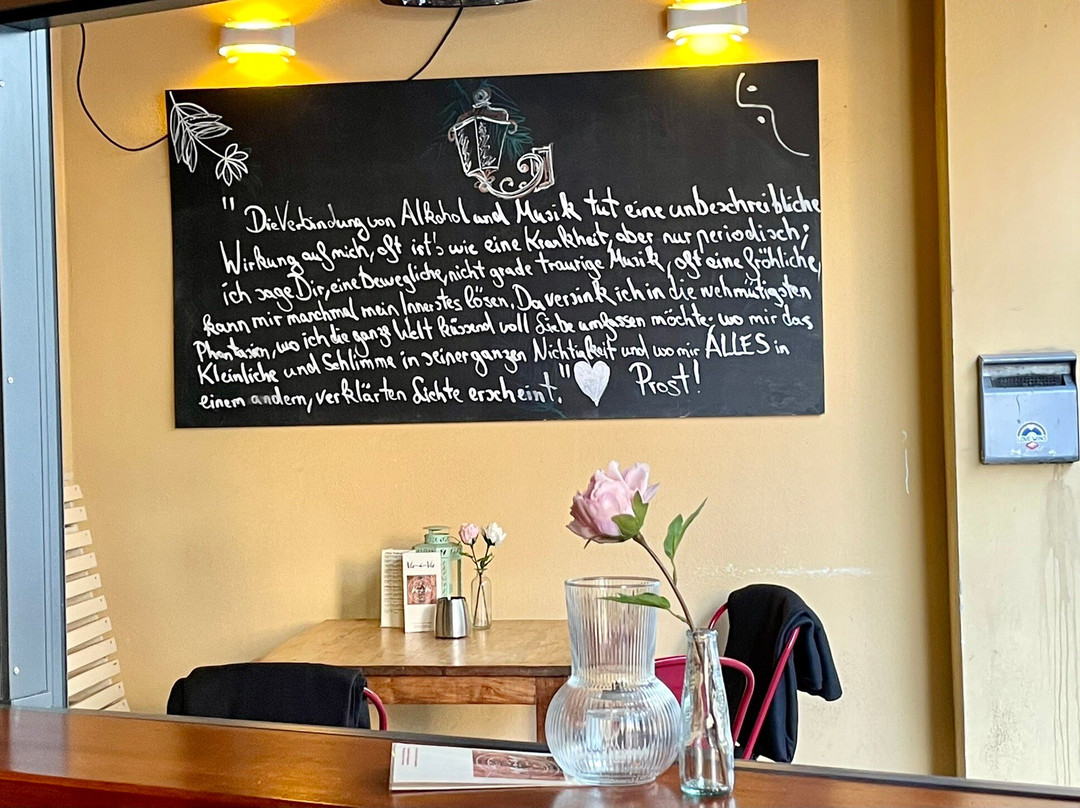 " Die Verbindung von Alkohol und Musik tut eine unbeschreibliche
Wirkung auf mich, oft ist's wie eine Krankheit, aber nur periodisch;
ich sage Dir, eine bewegliche, nicht grade traurige Musik, oft eine fröhliche,
kann mir manchmal mein Innerstes lösen. Da versink ich in die wehmütigsten
Phantasien, wo ich die ganze Welt küssend voll Liebe umfassen möchte; wo mir das
Kleinliche und Schlimme in seiner ganzen Nichtigkeit und wo mir ALLES in
einem andern, verklärten Lichte erscheint." Prost!